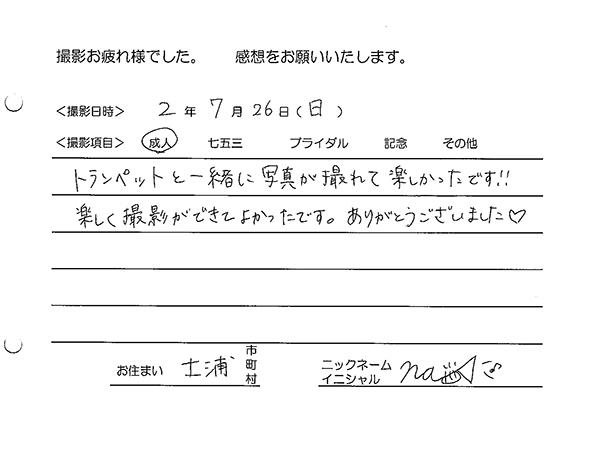 撮影お疲れ様でした。 感想をお願いいたします。
＜撮影日時＞ 2 年 7 月 26 日（日）
＜撮影項目＞ 成人 七五三 ブライダル 記念 その他
トランペットと一緒に写真が撮れて楽しかったです!!
楽しく撮影ができてよかったです。ありがとうございました♡
お住まい 土浦 市町村 ニックネーム イニシャル na